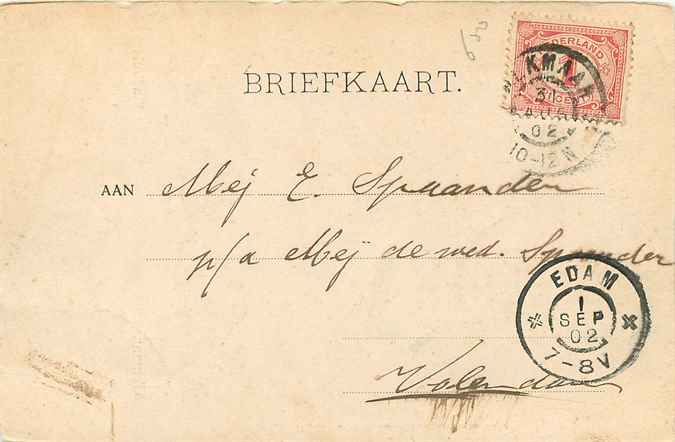 NEDERLAND
1 CENT
KMAAR
31
AUG
02
10-12N
BRIEFKAART.
AAN Mej E. Spaander
p/a Mej de wed. Spaander
EDAM
1
SEP
02
7-8V
Volendam